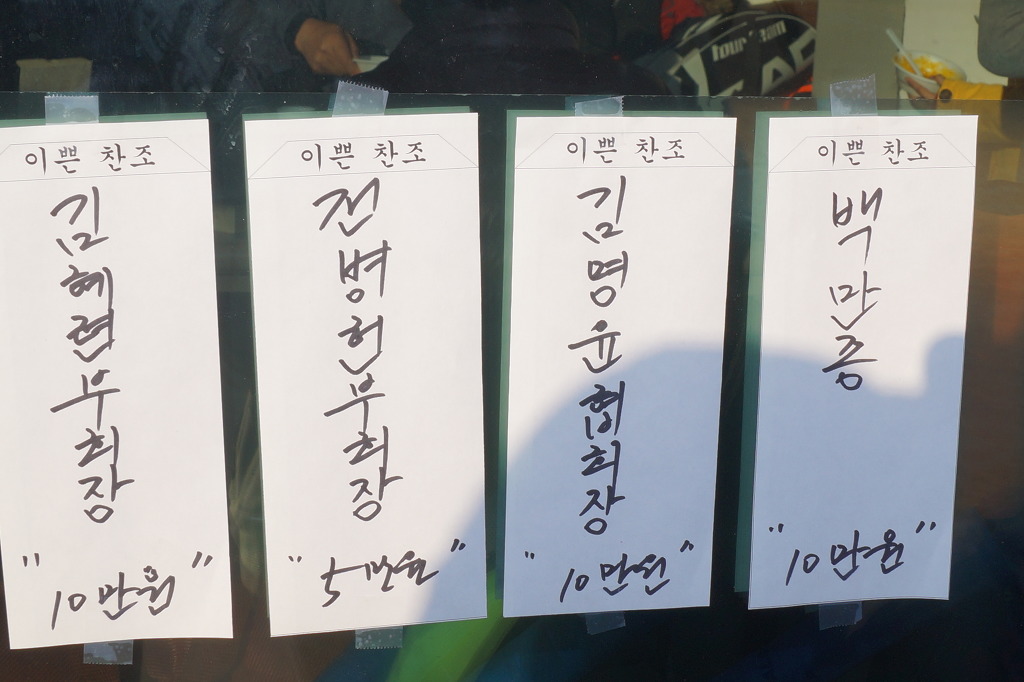 이쁜 찬조
김혜련부회장
"10만원"
이쁜 찬조
전병헌부회장
"5만원"
이쁜 찬조
김명윤협회장
"10만원"
이쁜 찬조
백만종
"10만원"
tour team